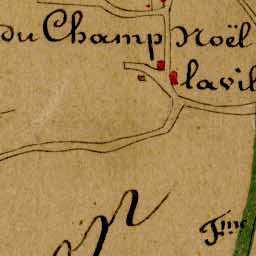 du Champ Noël
lavil
Fme